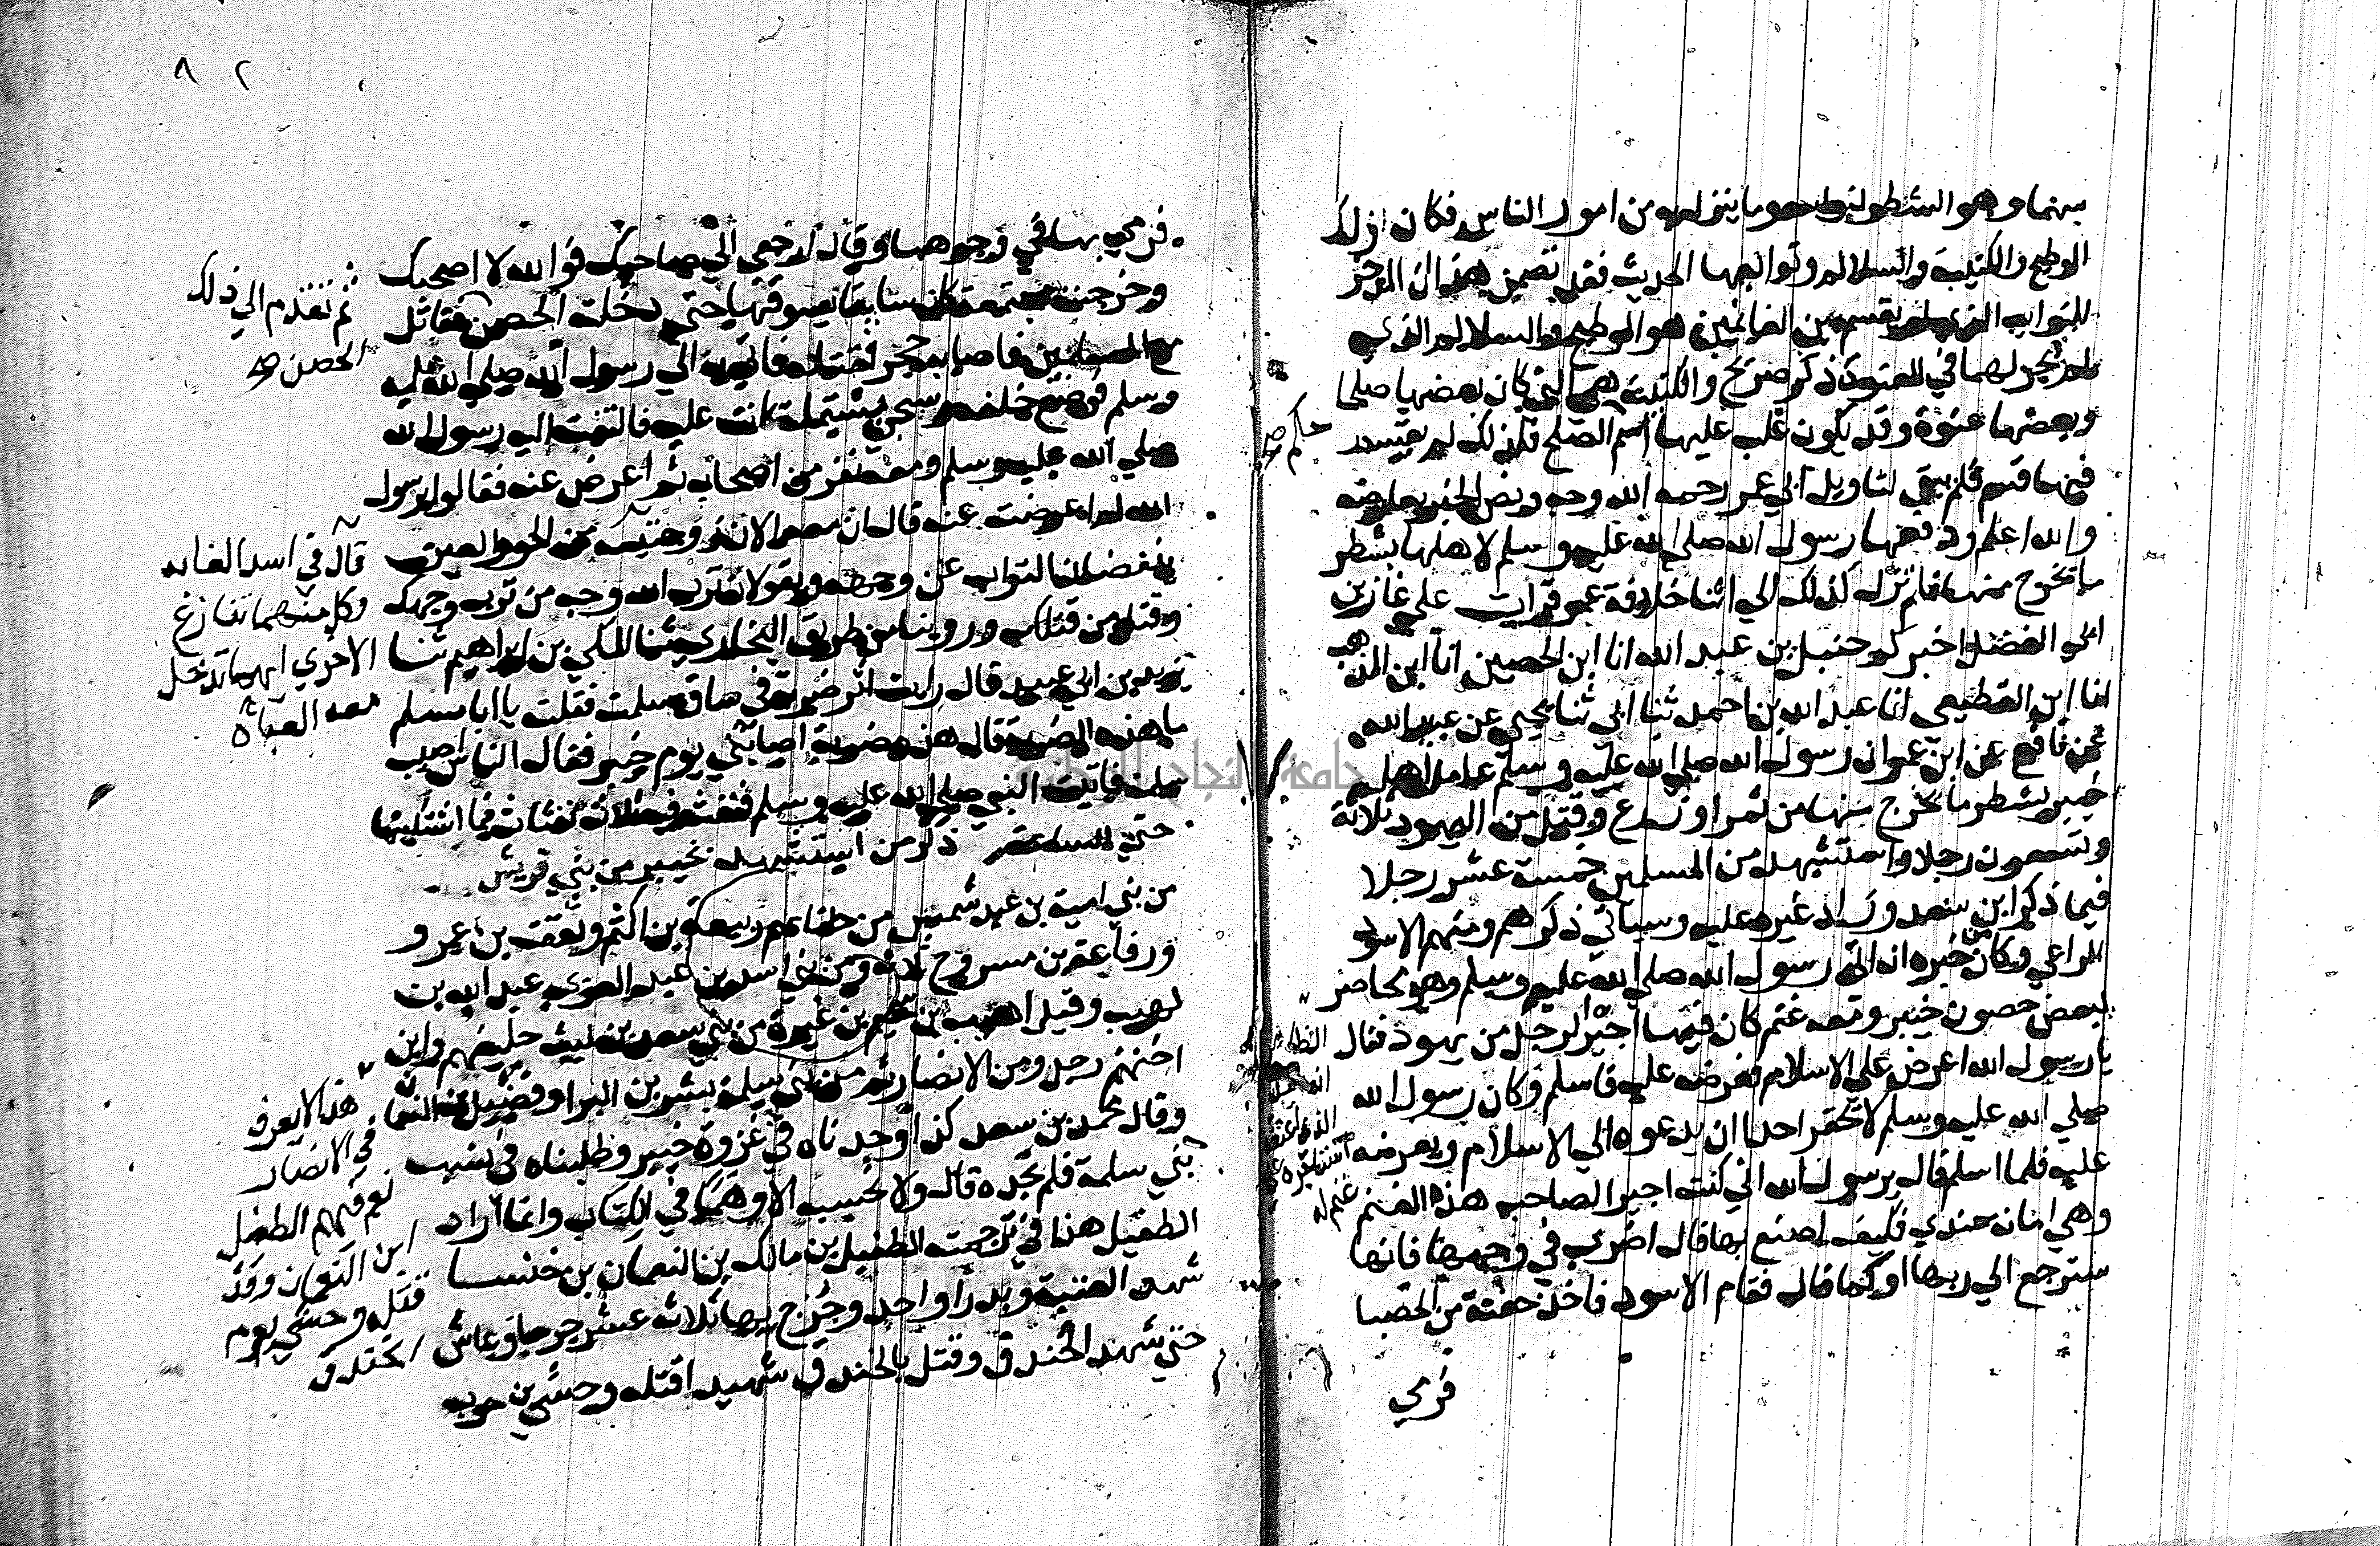 سهما وهو الشطر لنوايبه وما ينزل به من امور الناس فكان ذلك
الوطيح والكتيبة والسلالم وتوابعها الحديث فقد تضمن هذا ان المدخر
للنوايب الذي لم يقسم بين الغانمين هو الوطيح والسلالم الذي
لم يجر لهما في العنوة ذكر صريح والكتيبة التي كان بعضها صلحا
وبعضها عنوة وقد يكون غلب عليها اسم الصلح فلذلك لم يقسم
حكم
فيما قسم فلم يبق لتاويل ابي عمر رحمه الله وجه ونص الخبر يعارضه
والله اعلم ودفعها رسول الله صلى الله عليه وسلم لاهلها بشطر
ما يخرج منها فلم تزل كذلك الى اثنا خلافة عمر قرات على غازي بن
ابي الفضل اخبركم حنبل بن عبد الله انا ابن الحصين انا ابن المذهب
انا ابن القطيعي انا عبد الله بن احمد ثنا ابي ثنا يحيى عن عبيد الله
عن نافع عن ابن عمر ان رسول الله صلى الله عليه وسلم عامل اهل
خيبر بشطر ما يخرج منها من ثمر او زرع وقتل من اليهود ثلاثة
وتسعون رجلا واستشهد من المسلمين خمسة عشر رجلا
فيما ذكر ابن سعد وزاد غيره عليه وسياتي ذكرهم ومنهم الاسود
الراعي وكان من خبره انه اتى رسول الله صلى الله عليه وسلم وهو محاصر
لبعض حصون خيبر ومعه غنم كان فيها اجيرا لرجل من يهود فقال
يا رسول الله اعرض علي الاسلام فعرضه عليه فاسلم وكان رسول الله
صلى الله عليه وسلم لا يحقر احدا ان يدعوه الى الاسلام ويعرضه
عليه فلما اسلم قال يرسول الله اني كنت اجيرا لصاحب هذه الغنم
وهي امانة عندي فكيف اصنع بها قال اضرب في وجهها فانها
سترجع الى ربها او كما قال فقام الاسود فاخذ حفنة من الحصبا
فرمي
٨٢
فرمي بها في وجوهها وقال ارجعي الى صاحبك فوالله لا اصحبك
وخرجت مجتمعة كان سايقا يسوقها حتى دخلت الحصن فقاتل
ثم تقدم الى ذلك
الحصن
مع المسلمين فاصابه حجر فقتله فاتي به الى رسول الله صلى الله عليه
وسلم فوضع خلفه وسجي بشملة كانت عليه فالتفت اليه رسول الله
صلى الله عليه وسلم ومعه نفر من اصحابه ثم اعرض عنه فقالوا يرسول
الله لم اعرضت عنه قال ان معه الان زوجتيه من الحور العين
ينفضان التراب عن وجهه ويقولان ترب الله وجه من ترب وجهك
وقتل من قتلك وروينا من طريق البخاري ثنا المكي بن ابراهيم ثنا
قال في اسد الغابه
وكل منهما تنازع
الاخرى ايهما تدخل
معه العباة
يزيد بن ابي عبيد قال رايت اثر ضربة في ساق سلمة فقلت يا ابا مسلم
ما هذه الضربة قال هذه ضربة اصابتني يوم خيبر فقال الناس اصيب
سلمة فاتيت النبي صلى الله عليه وسلم فنفث فيه ثلاث نفثات فما اشتكيتها
حتى الساعة ذكر من استشهد بخيبر من بني قريش
من بني امية بن عبد شمس من حلفاءهم ربيعة بن اكثم وثقف بن عمرو
ورفاعة بن مسروح ثلاثة ومن بني اسد بن عبد العزى عبد الله بن
لهيب وقيل اهيب بن سحيم بن غيرة من بني سعد بن ليث حليفهم وابن
اختهم رجل ومن الانصار ثم من بني سلمة بشر بن البرا وفضيل بن النعما
وقال محمد بن سعد كذا وجدناه في غزوة خيبر وطلبناه في نسب
بني سلمة فلم نجده قال ولا احسبه الا وهما في الكتاب وانما اراد
الطفيل هذا في ترجمة الطفيل بن مالك بن النعمان بن خنسا
شهد العقبة وبدرا واحد وجرح بها ثلاثة عشر جرحا وعاش
حتى شهد الخندق وقتل بالخندق شهيدا قتله وحشي بن حرب
هذا لا يعرف
في الانصار
نعم فيهم الطفيل
ابن النعمان وقد
قتله وحشي يوم
الخندق